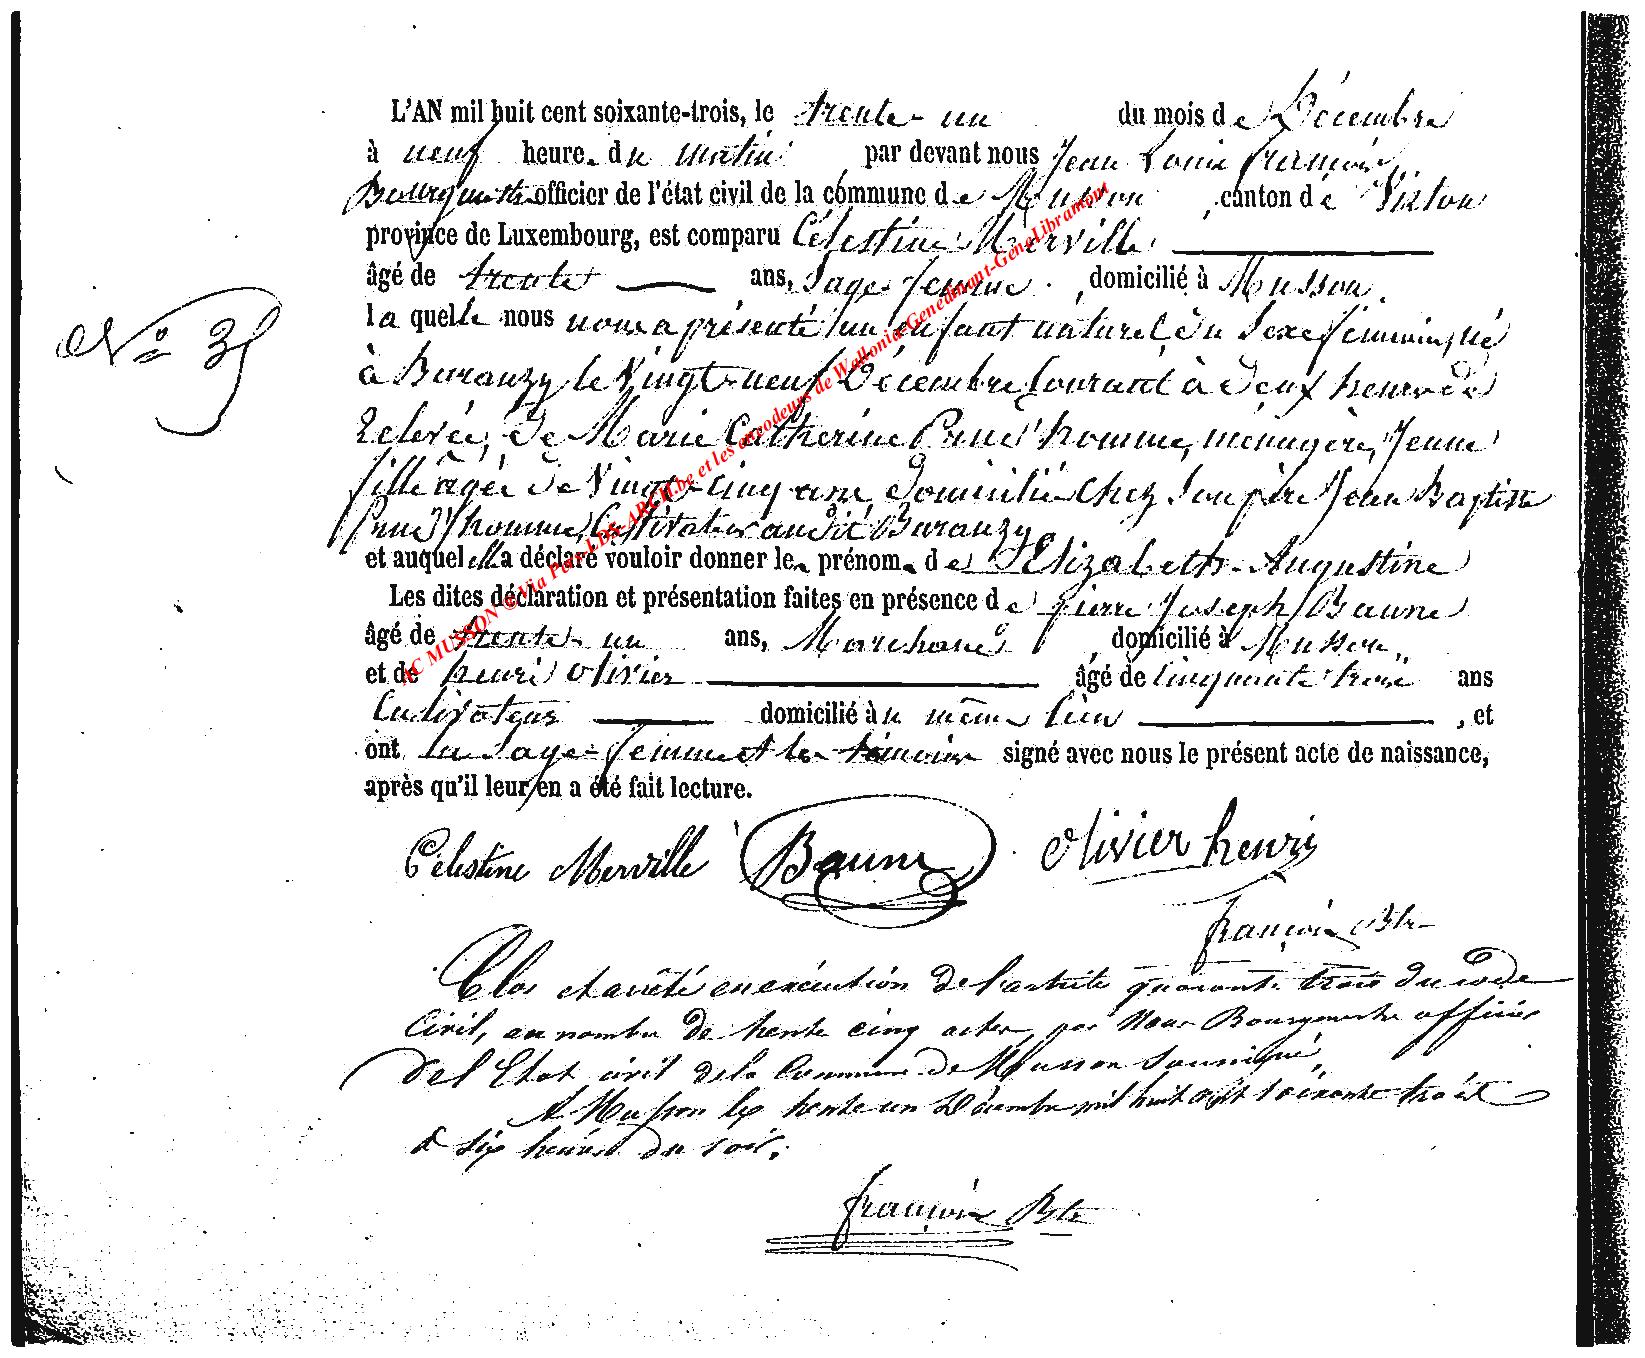 L'AN mil huit cent soixante-trois, le trente-un du mois de Décembre
à neuf heure. du matin par devant nous Jean Louis François,
Bourgmestre officier de l'état civil de la commune de Musson, canton de Virton
province de Luxembourg, est comparu Célestine Merville
âgé de trente ans, Sage-femme, domicilié à Musson,
la quelle nous nous a présenté un enfant naturel du Sexe féminin, né
N° 35
à Baranzy le Vingt-neuf Décembre Courant à deux heures de
relevée, de Marie Catherine Prud'homme, ménagère, jeune
fille âgée de Vingt-cinq ans domiciliée chez Son père Jean Baptiste
Prud'homme, Cultivateur audit Baranzy,
et auquel elle a déclaré vouloir donner le prénom de Elizabeth-Augustine
Les dites déclaration et présentation faites en présence de pierre Joseph Baune
âgé de trente-un ans, Marchand, domicilié à Musson,
et de henri Olivier âgé de Cinquante trois ans
Cultivateur domicilié au même lieu, et
ont la Sage-femme et les témoins signé avec nous le présent acte de naissance,
après qu'il leur en a été fait lecture.
Célestine Merville Baune Olivier henri
françois Btre
Clos et arrêté en exécution de l'article quarante trois du code
Civil, au nombre de trente cinq actes, par Nous Bourgmestre officier
de l'Etat civil de la Commune de Musson Soussigné,
A Musson le trente un Décembre mil huit cent soixante trois
à six heures du soir.
françois Btre
AC MUSSON © Via Por-LDS-ARCH.be et les encodeurs de Wallonia-Genedinant-GeneLibramont